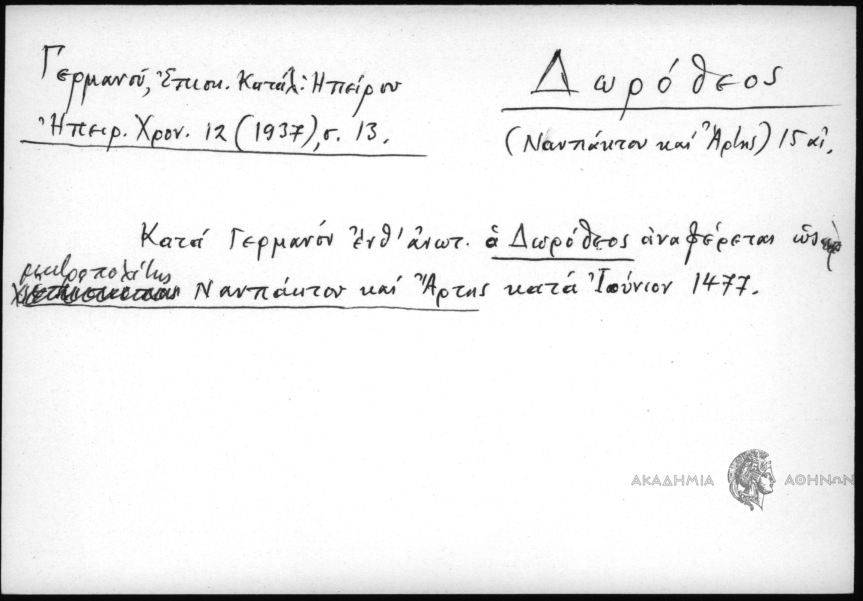 Γερμανού, Ἐπισκ. Κατάλ: Ἠπείρου
Ἠπειρ. Χρον. 12 (1937), σ. 13.
Δωρόθεος
(Ναυπάκτου καί Ἄρτης) 15 αἰ.
Κατά Γερμανόν ἔνθ' ἀνωτ. ὁ Δωρόθεος ἀναφέρεται ὡς
μητροπολίτης
Ναυπάκτου καί Ἄρτης κατά Ἰούνιον 1477.
ΑΚΑΔΗΜΙΑ ΑΘΗΝΩΝ